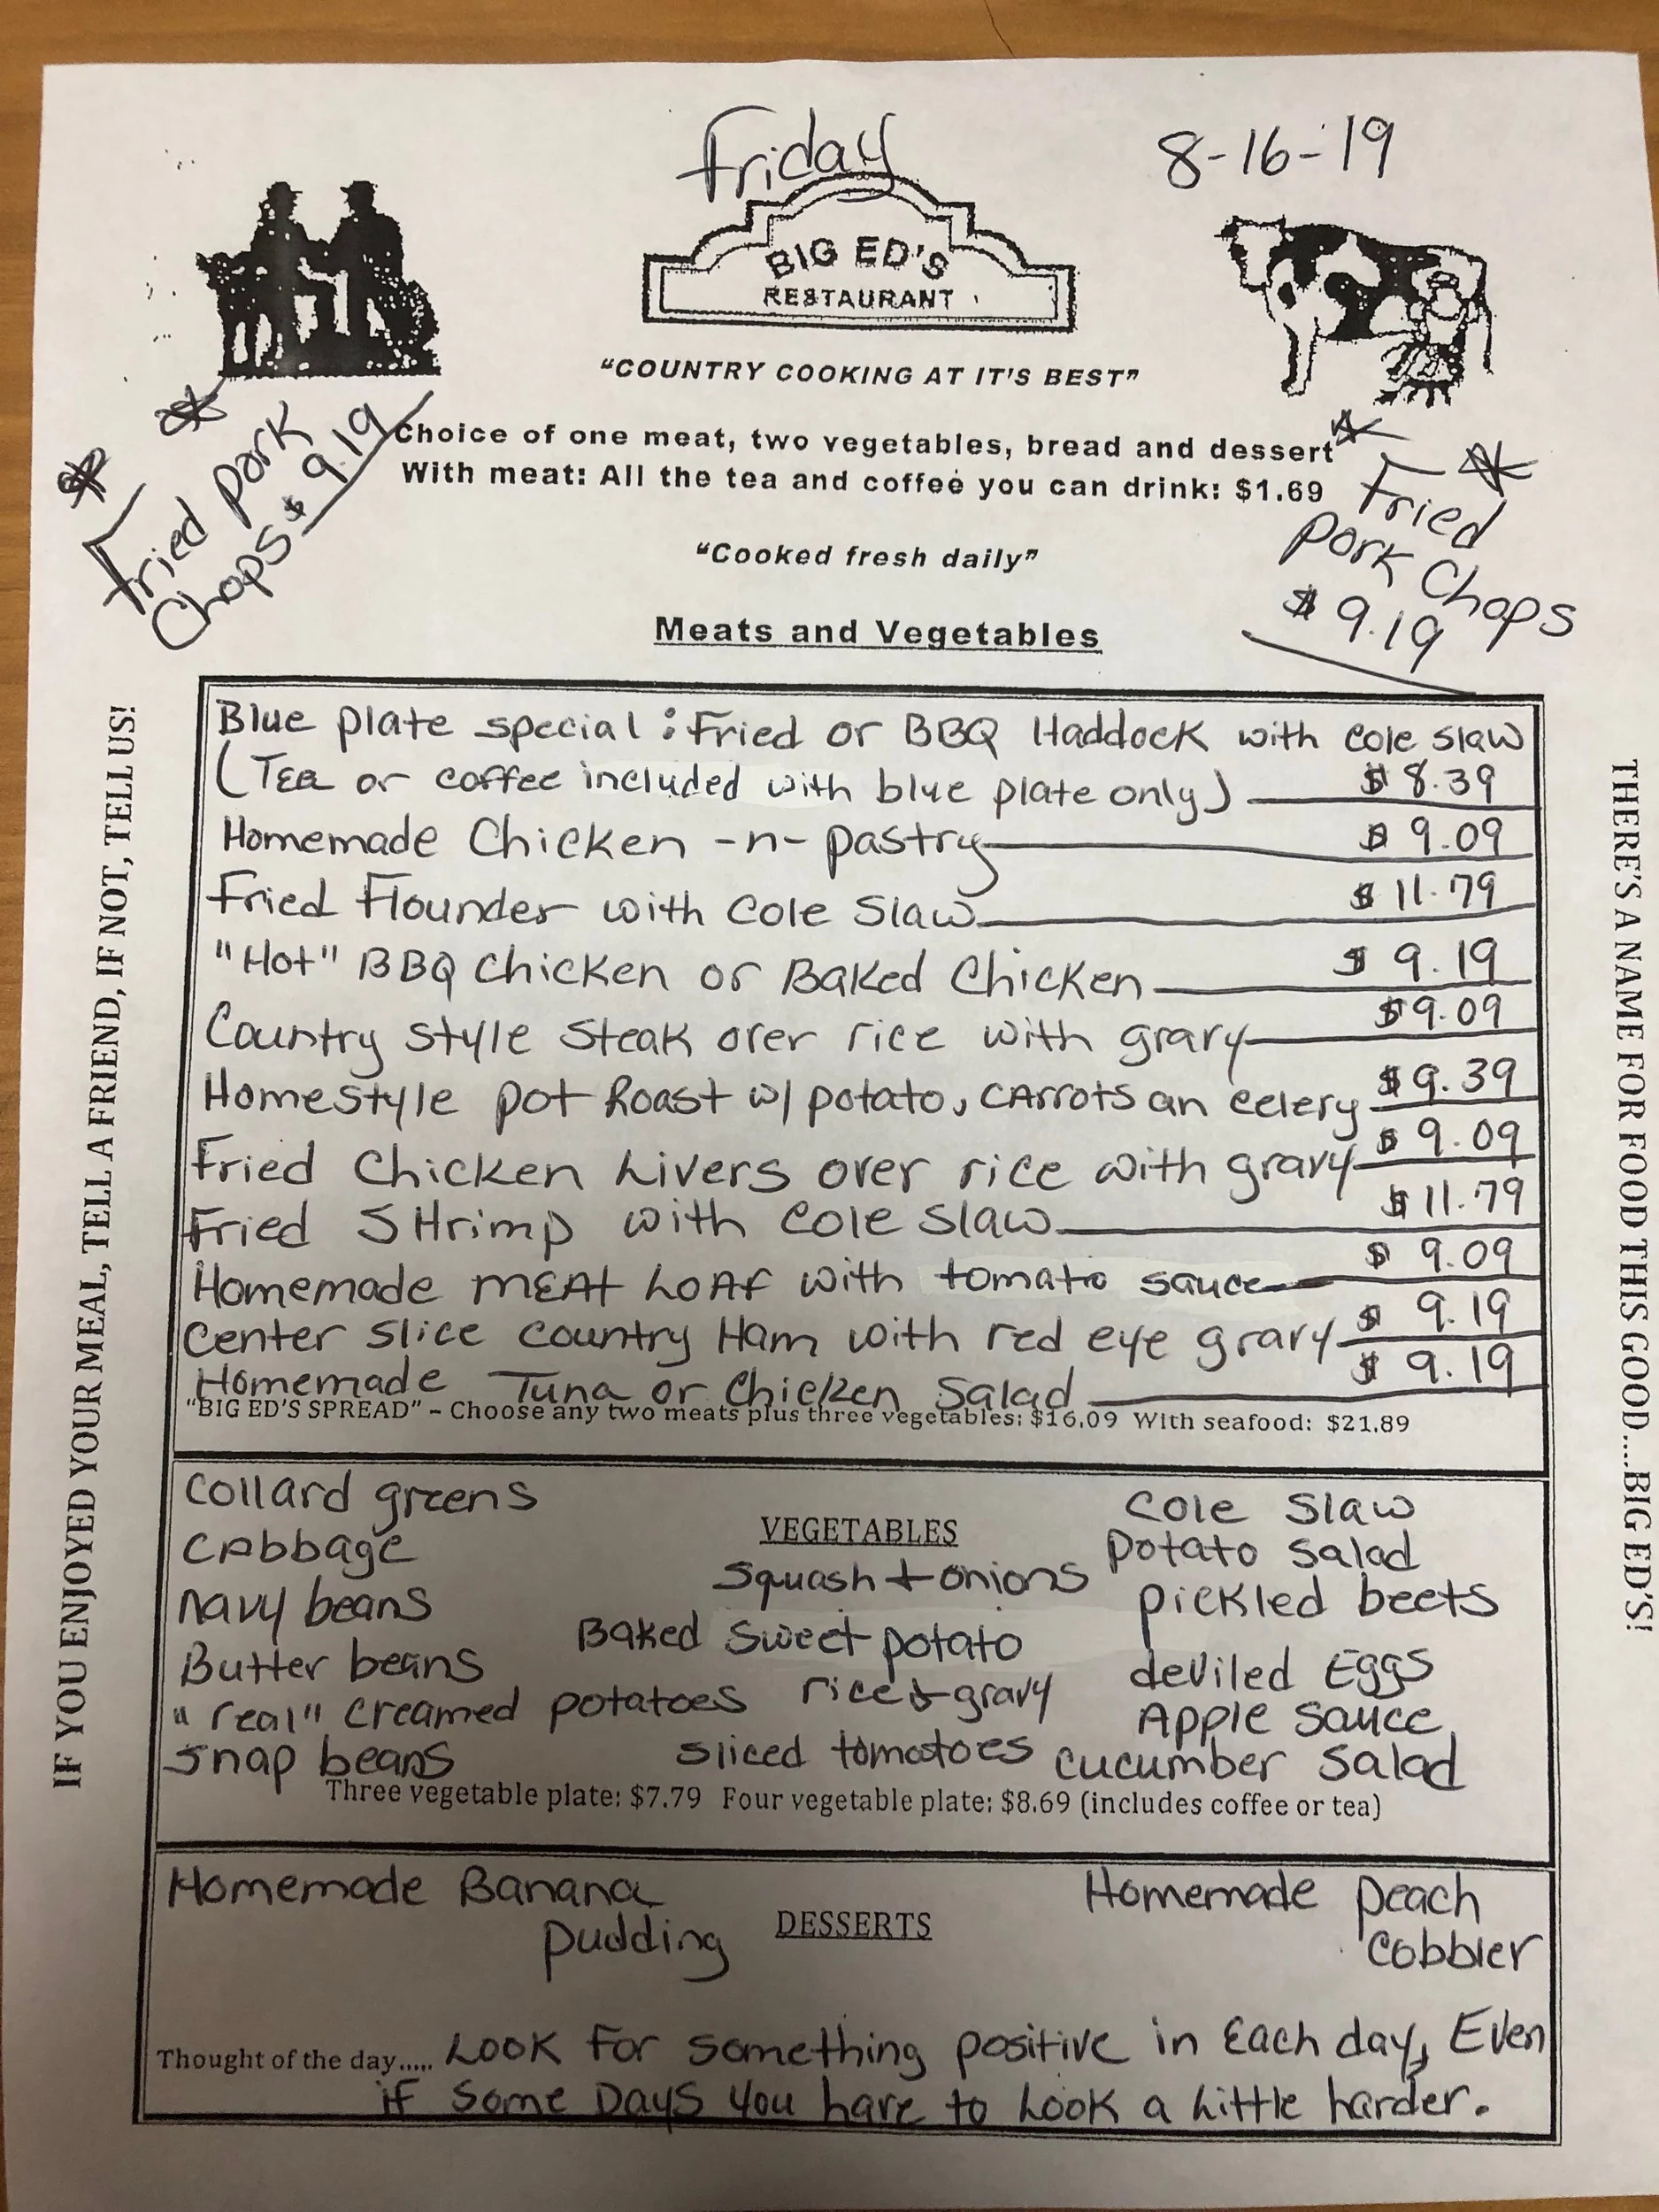 Friday
8-16-19
BIG ED'S
RESTAURANT
"COUNTRY COOKING AT IT'S BEST"
Choice of one meat, two vegetables, bread and dessert
With meat: All the tea and coffee you can drink: $1.69
"Cooked fresh daily"
Fried Pork
Chops $9.19
Fried
Pork Chops
$9.19
Meats and Vegetables
Blue plate special: Fried or BBQ Haddock with cole slaw
(Tea or coffee included with blue plate only) $8.39
Homemade Chicken -n- pastry $9.09
Fried Flounder with Cole Slaw $11.79
"Hot" BBQ Chicken or Baked Chicken $9.19
Country style Steak over rice with gravy $9.09
Homestyle pot Roast w/ potato, cArrots an celery $9.39
Fried Chicken Livers over rice with gravy $9.09
Fried SHrimp with Cole Slaw $11.79
Homemade MEAt LoAf with tomato sauce $9.09
Center slice country Ham with red eye gravy $9.19
Homemade Tuna or Chicken Salad $9.19
"BIG ED'S SPREAD" – Choose any two meats plus three vegetables: $16.09 With seafood: $21.89
VEGETABLES
Collard greens
Cabbage
Navy beans
Butter beans
"real" creamed potatoes
Snap beans
Squash + onions
Baked sweet potato
rice & gravy
sliced tomatoes
Cole Slaw
Potato Salad
pickled beets
deviled Eggs
Apple Sauce
Cucumber Salad
Three vegetable plate: $7.79 Four vegetable plate: $8.69 (includes coffee or tea)
DESSERTS
Homemade Banana
Pudding
Homemade Peach
Cobbler
Thought of the day..... Look For something positive in Each day, Even
if some Days you have to Look a Little harder.
IF YOU ENJOYED YOUR MEAL, TELL A FRIEND, IF NOT, TELL US!
THERE'S A NAME FOR FOOD THIS GOOD....BIG ED'S!